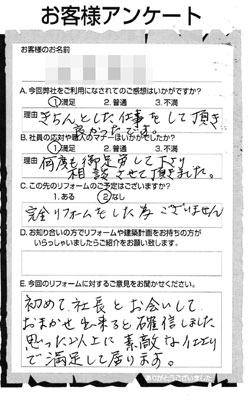 お客様アンケート
お客様のお名前
A. 今回弊社をご利用になされてのご感想はいかがですか？
①満足 2. 普通 3. 不満
理由 きちんとした仕事をして頂き
良かったです。
B. 社員の応対や職人のマナーはいかがでしたか？
①満足 2. 普通 3. 不満
理由 何度も御足労して下さり
相談させて頂きました。
C. この先のリフォームのご予定はございますか？
1. ある ②なし
完全リフォームをした為ございません
D. お知り合いの方でリフォームや建築計画をお持ちの方が
いらっしゃいましたらご紹介をお願い致します。
E. 今回のリフォームに対するご意見をお聞かせください。
初めて社長とお会いして
おまかせ出来ると確信しました
思った以上に素敵な仕上り
で満足して居ります。
ありがとうございました